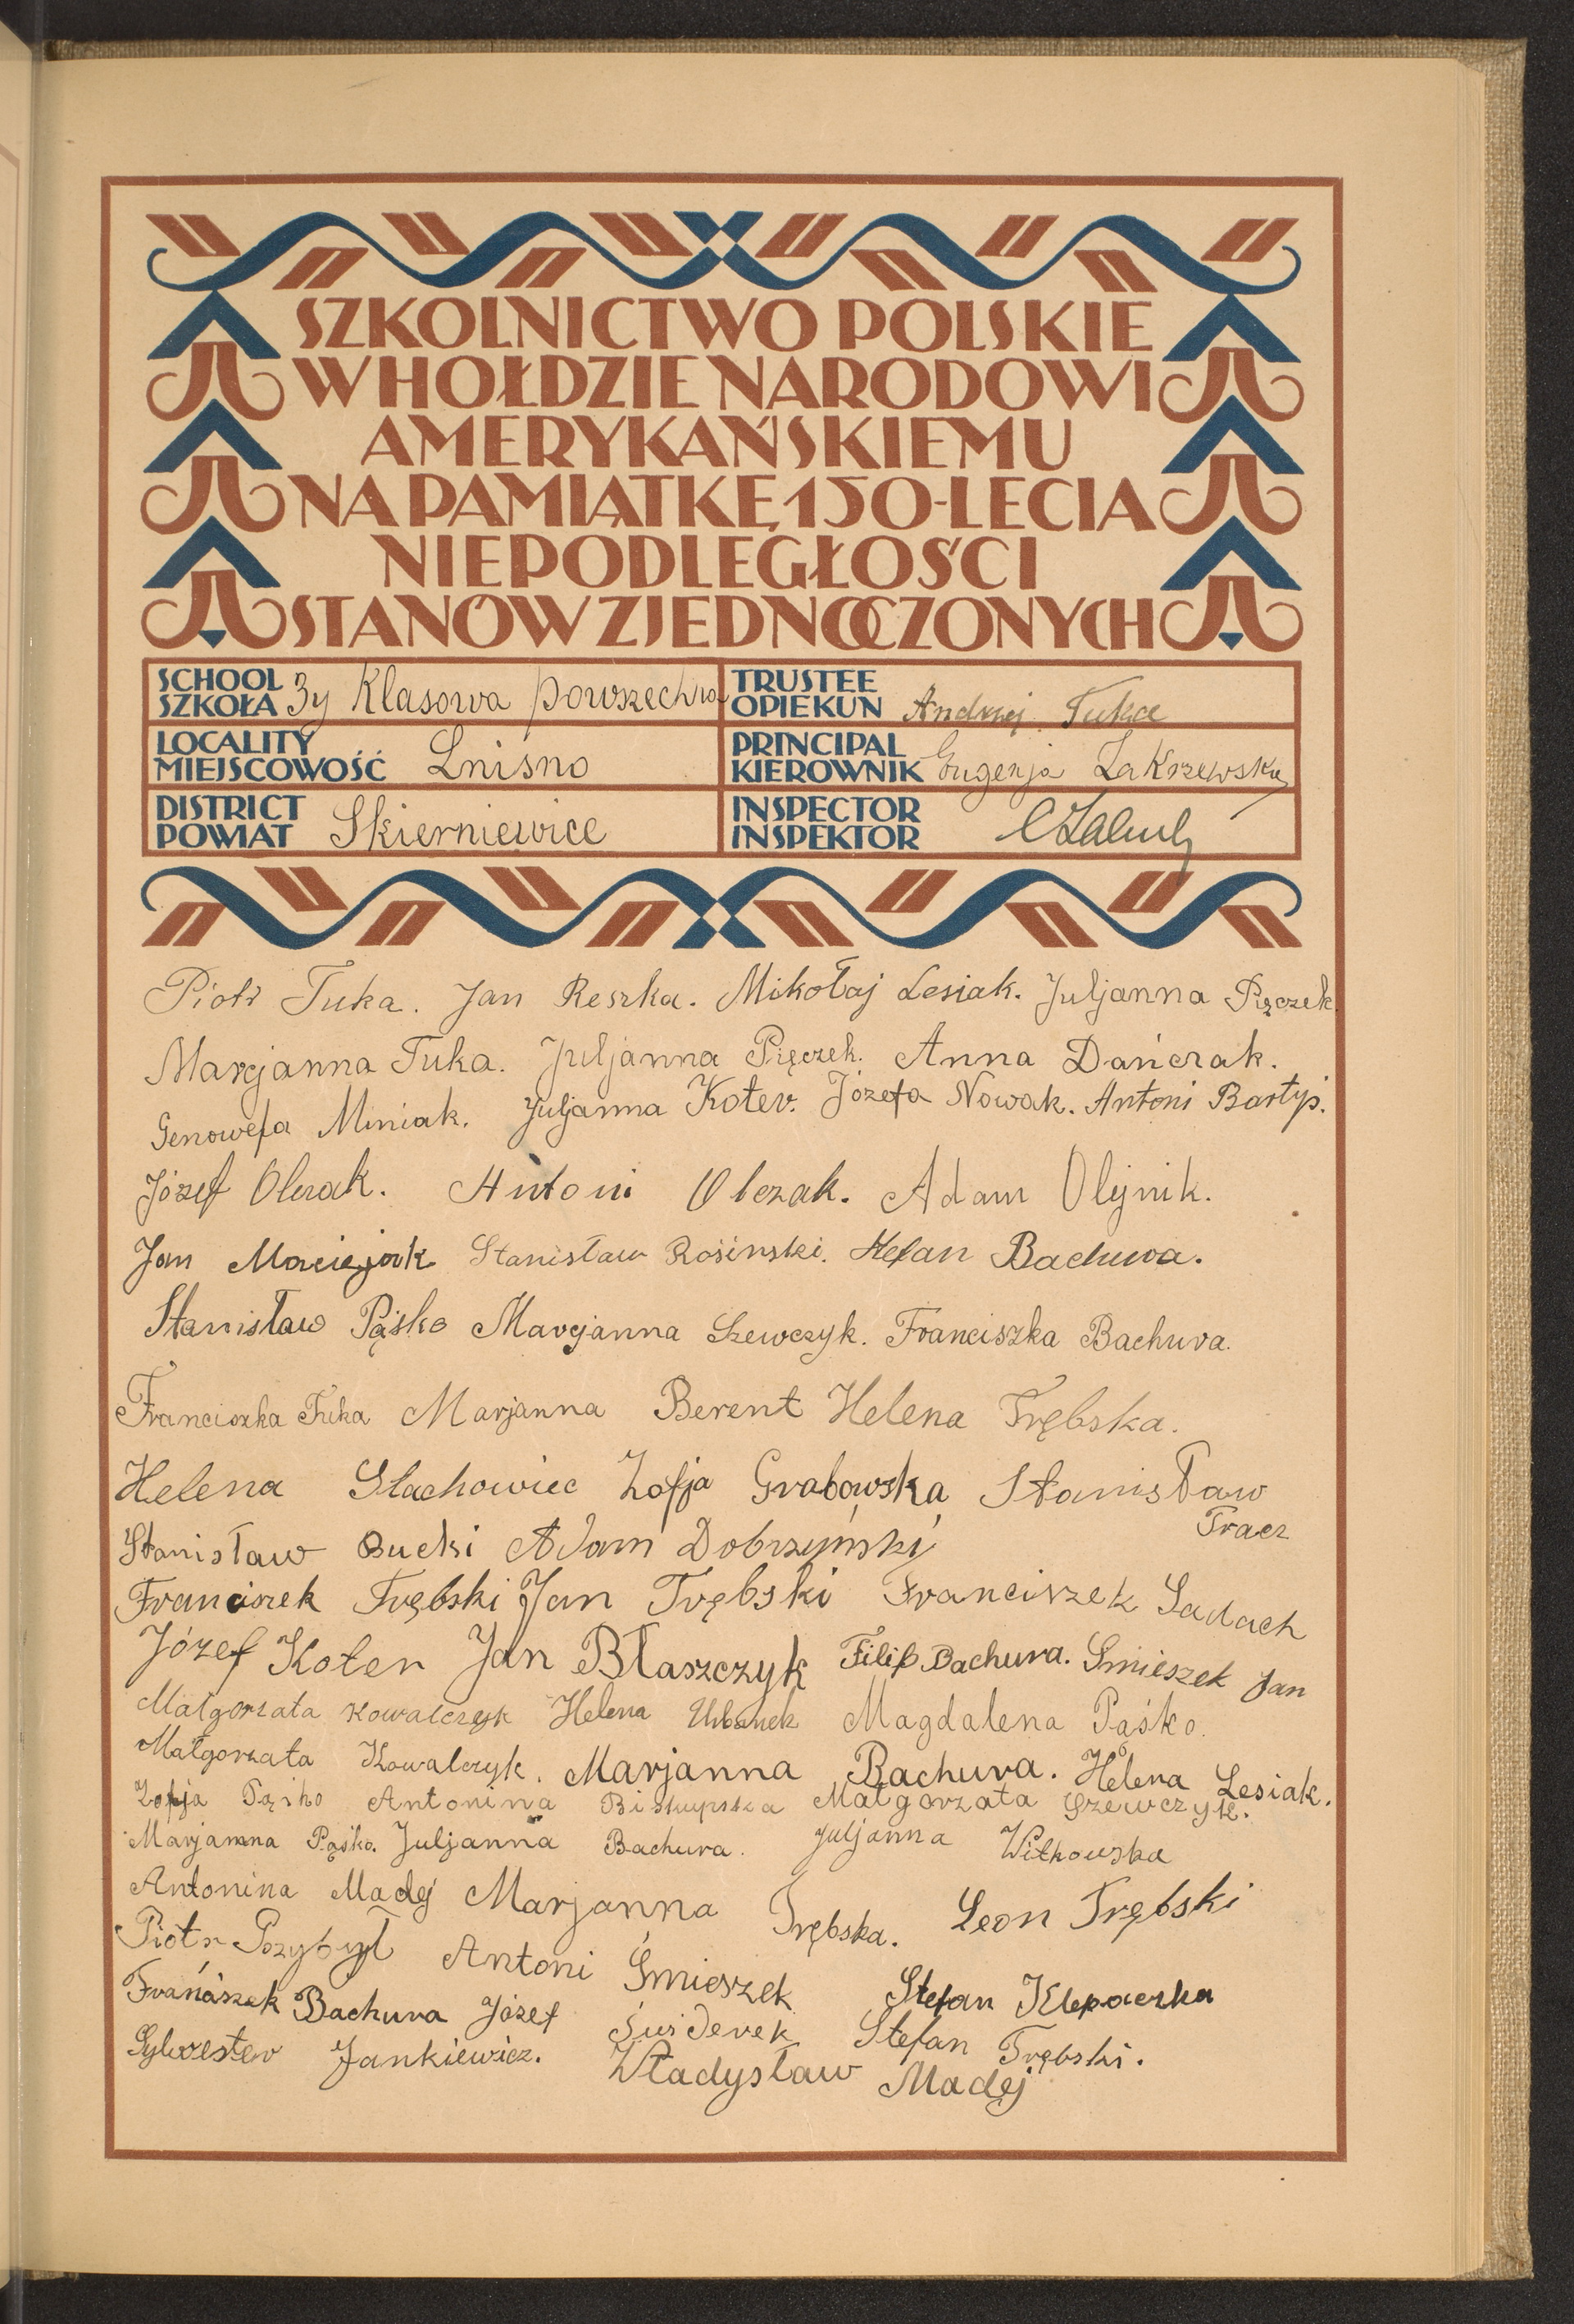 SZKOLNICTWO POLSKIE
W HOŁDZIE NARODOWI
AMERYKAŃSKIEMU
NA PAMIĄTKĘ 150-LECIA
NIEPODLEGŁOŚCI
STANÓW ZJEDNOCZONYCH
SCHOOL
SZKOŁA 3y Klasowa powszechna
TRUSTEE
OPIEKUN Andrzej Tuka
LOCALITY
MIEJSCOWOŚĆ Lnisno
PRINCIPAL
KIEROWNIK Eugenja Zakrzewska
DISTRICT
POWIAT Skierniewice
INSPECTOR
INSPEKTOR
Piotr Tuka. Jan Reszka. Mikołaj Lesiak. Juljanna Pięczek.
Marcjanna Tuka. Juljanna Pięczek. Anna Dańczak.
Genowefa Miniak. Juljanna Koter. Józefa Nowak. Antoni Bartyś.
Józef Olczak. Antoni Olczak. Adam Olejnik.
Jan Maciejak Stanisław Rosiński. Stefan Bachura.
Stanisław Pąśko Marcjanna Szewczyk. Franciszka Bachura.
Franciszka Tuka Marjanna Berent Helena Trębska.
Helena Stachowiec Zofja Grabowska Stanisław
Tracz
Stanisław Bucki Adam Dobrzyński
Franciszek Trębski Jan Trębski Franciszek Sadach
Józef Koter Jan Błaszczyk Filip Bachura. Śmieszek Jan
Małgorzata Kowalczyk Helena Urbanek Magdalena Pąśko.
Małgorzata Kowalczyk. Marjanna Bachura. Helena Lesiak.
Zofja Pąśko Antonina Biskupska Małgorzata Szewczyk.
Marjanna Pąśko. Juljanna Bachura. Juljanna Witkowska
Antonina Madej Marjanna Trębska. Leon Trębski
Piotr Pozybył Antoni Śmieszek Stefan Klepaczka
Franciszek Bachura Józef Suśderek Stefan Trębski.
Sylwester Jankiewicz. Władysław Madej